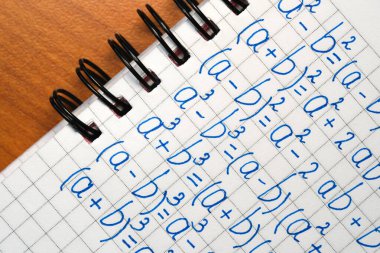 a²-b²=(a-
(a+b)²=a²+2ab
(a-b)²=a²-2ab+
a³-b³=(a-b)(a²
a³+b³=(a+b)(a
(a-b)³=a³
(a+b)³=a³